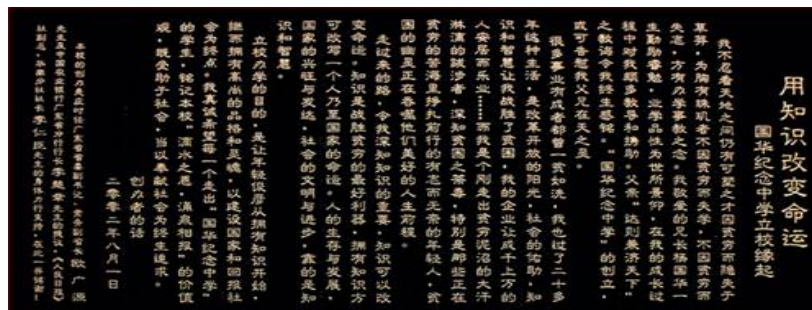 用知识改变命运
国华纪念中学立校缘起
我不忍看天地之间仍有可塑之才因贫穷而隐失于
草莽,为胸有珠玑者不因贫穷而失学,不因贫穷而
失志,方有办学事教之念。我敬爱的兄长杨国华一
生勤勤睿勉,业学品性为世所景仰,在我的成长过
程中对我颇多教导和携助。父亲“达则兼济天下”
之教诲令我终生感铭。“国华纪念中学”的创立,
或可告慰我父兄在天之灵。
很多事业有成者都曾一贫如洗,我也过了二十多
年这种生活,是改革开放的阳光,社会的佑助,知
识和智慧让我战胜了贫困,我的企业让成千上万的
人安居而乐业……而我是个刚走出贫穷泥沼的大汗
淋漓的跋涉者,深知贫困之苦毒,特别是那些正在
贫穷的苦海里挣扎前行的有志而无奈的年轻人,贫
困的幽灵正在吞噬他们美好的人生前程。
走过来的路,令我深知知识的重要,知识可以改
变命运。知识是战胜贫穷的最好利器,拥有知识方
可改写一个人乃至国家的命运。人的生存与发展,
国家的兴旺与发达,社会的文明与进步,靠的是知
识和智慧。
立校办学的目的,是让年轻俊彦从拥有知识开始,
继而拥有高尚的品格和灵魂,以建设国家和回报社
会为终点。我真诚希望每一个走出“国华纪念中学”
的学生,铭记本校“滴水之恩,涌泉相报”的价值
观,既受助于社会,当以奉献社会为终生追求。
创办者的话
二零零二年八月一日
本校的创办是应时任广东省省委副书记、常务副省长欧广源
先生及中国农业银行广东省分行行长李超章先生的倡议,《人民日报》
社副总、华南分社社长李仁臣先生的身体力行支持,在此一并铭谢!